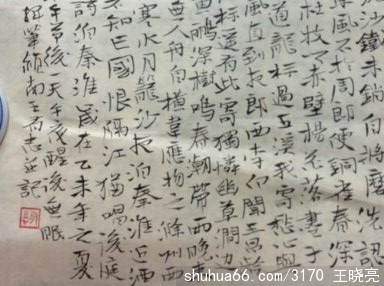 铁未銷自将磨洗認
風不与周郎便銅雀春深
杜牧之赤壁楊花落盡子
道龍標過五溪我寄愁心與
風直到夜郎西李白聞王昌齡
標遥有此寄獨憐幽草澗边
鸝深樹鳴春潮帶雨晚
無人舟自横韋應物之滁州西
寒水月籠沙夜泊秦淮近酒
不知亡國恨隔江猶唱後庭
詩泊秦淮歲在乙未年之夏
午節後一天午夜醒後無眠
揮筆南王志並記
shuhua66.com/3170 王晓亮